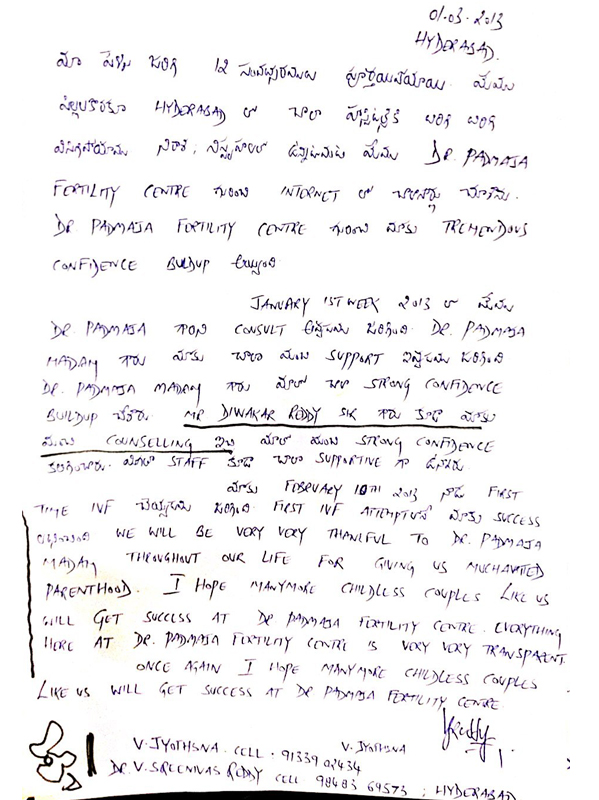 01.03.2013
HYDERABAD.
మా పెళ్ళి జరిగి 12 సంవత్సరములు పూర్తయిపోయాయి. మేము
పిల్లలకొరకూ HYDERABAD లో చాలా హాస్పిటల్స్‌కి తిరిగి తిరిగి
విసిగిపోయాము నిరాశ, నిస్పృహలలో ఉన్నప్పుడు మేము DR. PADMAJA
FERTILITY CENTRE గురించి INTERNET లో చూశాము.
DR. PADMAJA FERTILITY CENTRE గురించి మాకు TREMENDOUS
CONFIDENCE BUILDUP అయ్యింది
JANUARY 1ST WEEK 2013 లో మేము
DR. PADMAJA గారిని CONSULT అవ్వడము జరిగింది. DR. PADMAJA
MADAM గారు మాకు చాలా మంచి SUPPORT ఇవ్వడము జరిగింది
DR. PADMAJA MADAM గారు మాలో చాలా STRONG CONFIDENCE
BUILDUP చేశారు. MR DIWAKAR REDDY SIR గారు కూడా మాకు
మంచి COUNSELLING ఇచ్చి మాలో మంచి STRONG CONFIDENCE
కలిగించారు. మిగతా STAFF కూడా చాలా SUPPORTIVE గా ఉన్నారు
మాకు FEBRUARY 10TH 2013 నాడు FIRST
TIME IVF చెయ్యడము జరిగింది. FIRST IVF ATTEMPTలోనే మాకు SUCCESS
లభించింది WE WILL BE VERY VERY THANKFUL TO DR. PADMAJA
MADAM THROUGHOUT OUR LIFE FOR GIVING US MUCHAVAITED
PARENTHOOD. I HOPE MANYMORE CHILDLESS COUPLES LIKE US
WILL GET SUCCESS AT DR PADMAJA FERTILITY CENTRE. EVERYTHING
HERE AT DR. PADMAJA FERTILITY CENTRE IS VERY VERY TRANSPARENT.
ONCE AGAIN I HOPE MANYMORE CHILDLESS COUPLES
LIKE US WILL GET SUCCESS AT DR PADMAJA FERTILITY CENTRE.
V. JYOTHSNA. CELL - 91339 02434 V. JYOTHSNA
DR. V. SREENIVAS REDDY CELL 98483 69573 ; HYDERABAD